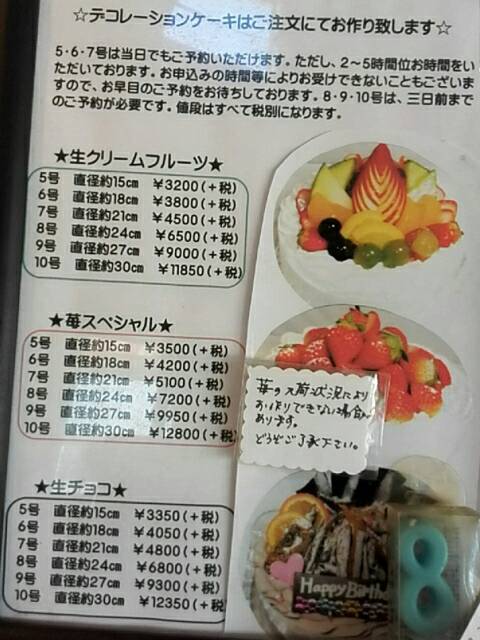 ☆デコレーションケーキはご注文にてお作り致します☆
5・6・7号は当日でもご予約いただけます。ただし、2～5時間位お時間をい
ただいております。お申込みの時間等によりお受けできないこともございま
すので、お早目のご予約をお待ちしております。8・9・10号は、三日前まで
のご予約が必要です。値段はすべて税別になります。
★生クリームフルーツ★
5号 直径約15㎝ ￥3200(+税)
6号 直径約18㎝ ￥3800(+税)
7号 直径約21㎝ ￥4500(+税)
8号 直径約24㎝ ￥6500(+税)
9号 直径約27㎝ ￥9000(+税)
10号 直径約30㎝ ￥11850(+税)
★苺スペシャル★
5号 直径約15㎝ ￥3500(+税)
6号 直径約18㎝ ￥4200(+税)
7号 直径約21㎝ ￥5100(+税)
8号 直径約24㎝ ￥7200(+税)
9号 直径約27㎝ ￥9950(+税)
10号 直径約30㎝ ￥12800(+税)
苺の入荷状況により
お作りできない場合が
あります。
どうぞご了承下さい。
★生チョコ★
5号 直径約15㎝ ￥3350(+税)
6号 直径約18㎝ ￥4050(+税)
7号 直径約21㎝ ￥4800(+税)
8号 直径約24㎝ ￥6800(+税)
9号 直径約27㎝ ￥9300(+税)
10号 直径約30㎝ ￥12350(+税)
Happy Birthd
8